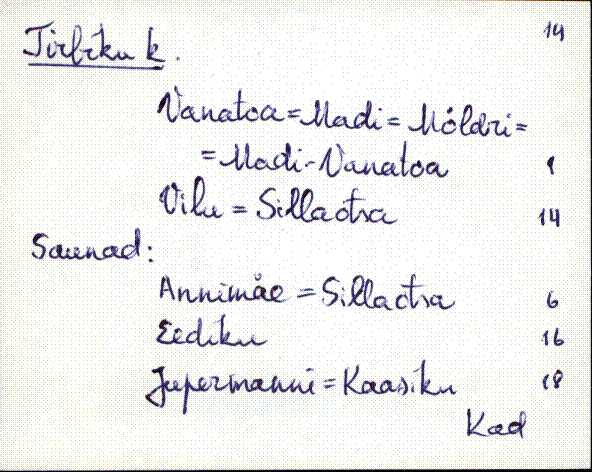 14
Tirbiku k.
Vanatoa = Madi = Möldri =
= Madi-Vanatoa 1
Vilu = Sillaotsa 14
Saunad:
Annimäe = Sillaotsa 6
Eediku 16
Jupermanni = Kaasiku 18
Kad